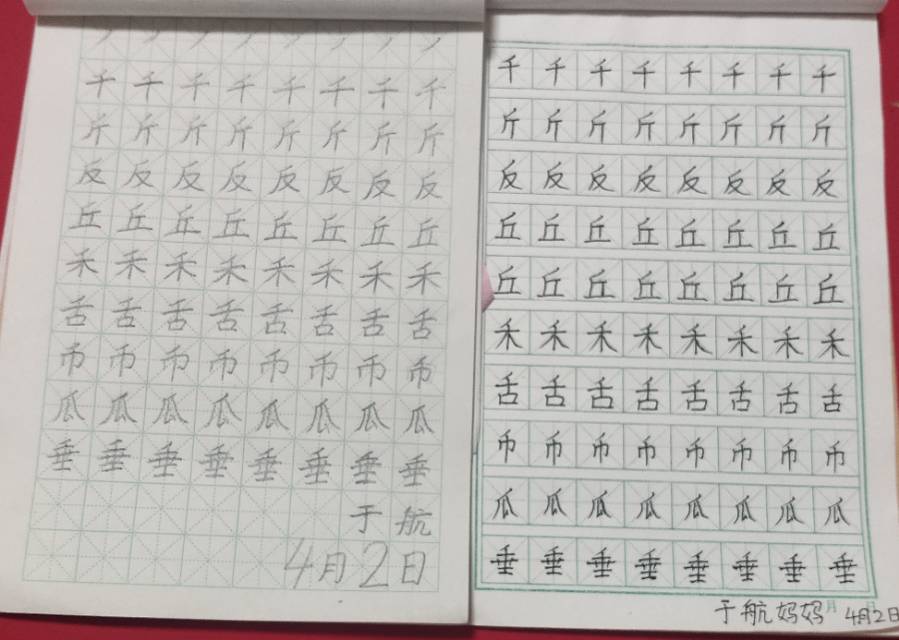 千千千千千千千千
斤斤斤斤斤斤斤斤
反反反反反反反反
丘丘丘丘丘丘丘丘
禾禾禾禾禾禾禾禾
舌舌舌舌舌舌舌舌
币币币币币币币币
瓜瓜瓜瓜瓜瓜瓜瓜
垂垂垂垂垂垂垂垂
于航
4月2日
千千千千千千千千
斤斤斤斤斤斤斤斤
反反反反反反反反
丘丘丘丘丘丘丘丘
丘丘丘丘丘丘丘丘
禾禾禾禾禾禾禾禾
舌舌舌舌舌舌舌舌
币币币币币币币币
瓜瓜瓜瓜瓜瓜瓜瓜
垂垂垂垂垂垂垂垂
于航妈妈 月 4月2日